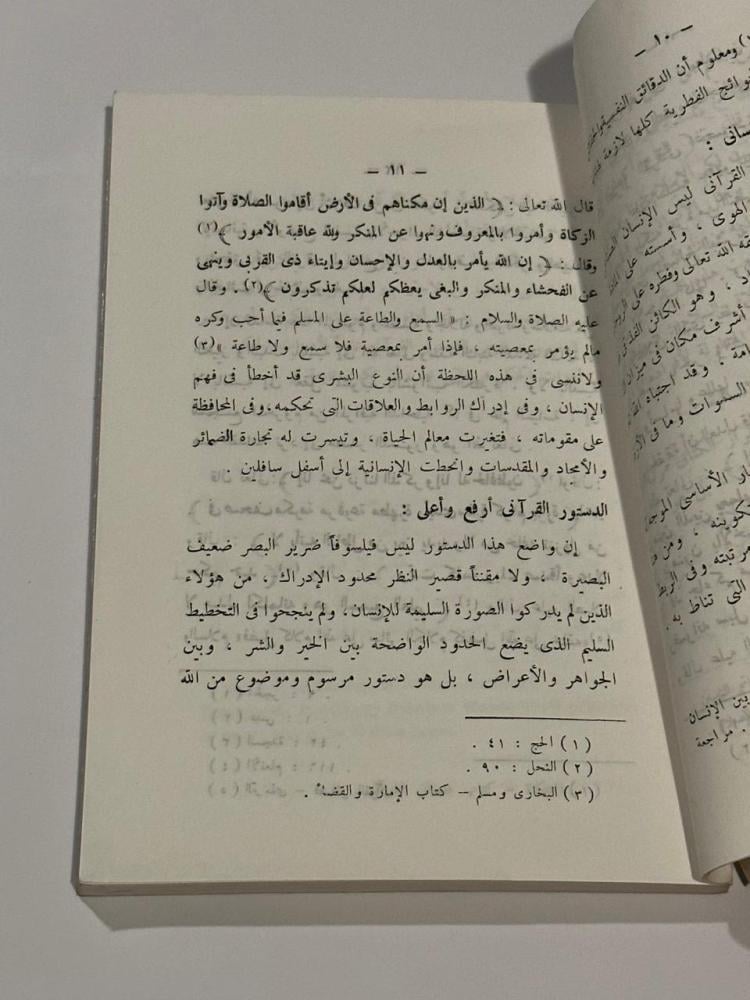 — ١٠ —
ومعلوم أن الدقائق النفسية
الفطرية كلها لازمة
القرآنى ليس الإنسان
الهوى ، وأسسته على
الله تعالى وفطره على
، وهو الكائن الفذ
أشرف مكان فى ميزان
. وقد اجتباه
السموات وما فى
الأساسى
تكوينه ، ومن
مرتبته وفى الربط
التى تناط به .
بين الإنسان
. مراجعة
— ١١ —
قال الله تعالى : ﴿ الذين إن مكناهم فى الأرض أقاموا الصلاة وآتوا
الزكاة وأمروا بالمعروف ونهوا عن المنكر ولله عاقبة الأمور ﴾(١)
وقال : ﴿ إن الله يأمر بالعدل والإحسان وإيتاء ذى القربى وينهى
عن الفحشاء والمنكر والبغى يعظكم لعلكم تذكرون ﴾(٢) . وقال
عليه الصلاة والسلام : « السمع والطاعة على المسلم فيما أحب وكره
مالم يؤمر بمعصيته ، فإذا أمر بمعصية فلا سمع ولا طاعة »(٣)
ولاننسى فى هذه اللحظة أن النوع البشرى قد أخطأ فى فهم
الإنسان ، وفى إدراك الروابط والعلاقات التى تحكمه . وفى المحافظة
على مقوماته ، فتغيرت معالم الحياة ، وتيسرت له تجارة الضمائر
والأمجاد والمقدسات وانحطت الإنسانية إلى أسفل سافلين .
الدستور القرآنى أرفع وأعلى :
إن واضع هذا الدستور ليس فيلسوفاً ضرير البصر ضعيف
البصيرة ، ولا مقنناً قصير النظر محدود الإدراك ، من هؤلاء
الذين لم يدركوا الصورة السليمة للإنسان. ولم ينجحوا فى التخطيط
السليم الذى يضع الحدود الواضحة بين الخير والشر ، وبين
الجواهر والأعراض ، بل هو دستور مرسوم وموضوع من الله
(١) الحج : ٤١ .
(٢) النحل : ٩٠ .
(٣) البخارى ومسلم — كتاب الإمارة والقضاء .